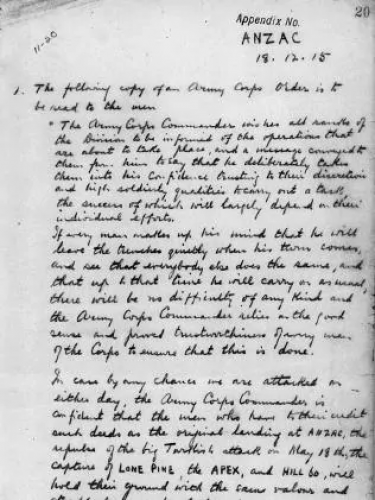 20
11-20
Appendix No.
ANZAC
18.12.15
1. The following copy of an Army Corps Order is to
be read to the men
" The Army Corps Commander wishes all ranks of
the Division to be informed of the operations that
are about to take place, and a message conveyed to
them from him to say that he deliberately takes
them into his confidence trusting to their discretion
and high soldierly qualities to carry out a task,
the success of which will largely depend on their
individual efforts.
If every man makes up his mind that he will
leave the trenches quietly when his turn comes,
and see that everybody else does the same, and
that up to that time he will carry on as usual,
there will be no difficulty of any kind and
the Army Corps Commander relies on the good
sense and proved trustworthiness of every man
of the Corps to ensure that this is done.
In case by any chance we are attacked on
either day, the Army Corps Commander is
confident that the men who have to their credit
such deeds as the original landing at ANZAC, the
repulse of the big Turkish attack on May 18th, the
capture of LONE PINE the APEX, and HILL 60, will
hold their ground with the same valour and